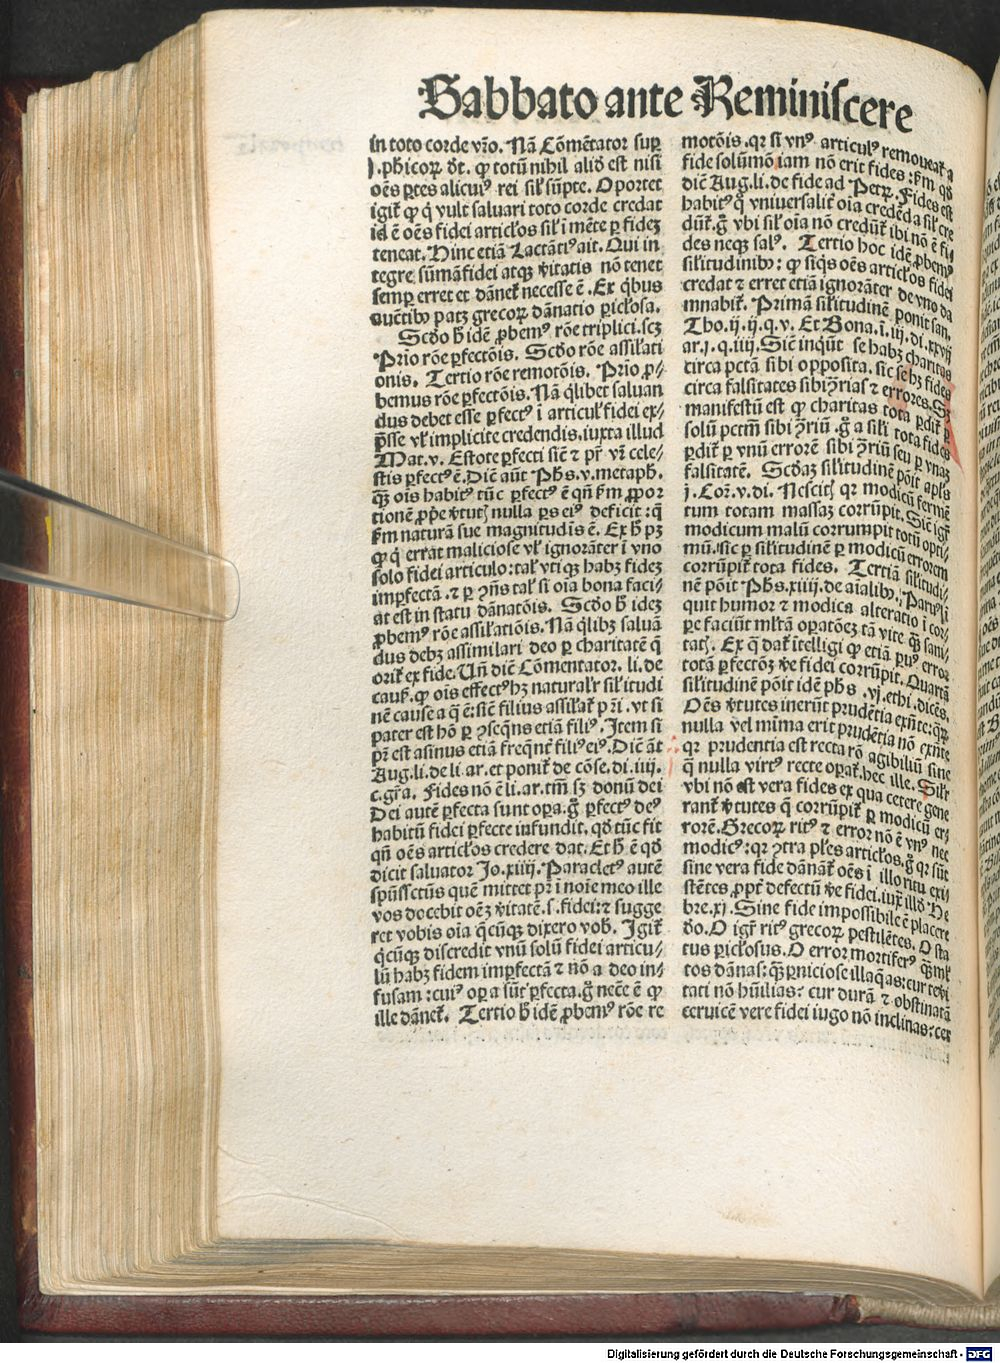 Sabbato ante Reminiscere
in toto corde vr̄o. Nā Cōmētator sup̱
j.phicoꝝ dt. ꝙ totū nihil aliđ est nisi
oēs ꝑtes alicuiꝰ rei silꝰ sūpte. Oportet
igit̉ ꝙ q̇ vult saluari toto corde credat
id ē oēs fidei articłos sil̛ ī mēte ꝑ fidez
teneat. Hinc etiā Lactātiꝰ ait. Qui in
tegre sūmā fidei atqꝫ v̛itatis nō tenet
semꝑ erret et dānet̉ necesse ē. Ex q̇bus
euētibꝰ patꝫ grecoꝝ dānatio ꝑicłosa.
Scđo h̄ idē ꝓbemꝰ rōe triplici.scꝫ
Prio rōe ꝑfectōis. Scđo rōe assil̛ati
onis. Tertio rōe remotōis. Prio ꝓ/
bemus rōe ꝑfectōis. Nā q̇libet saluan
dus debet esse ꝑfectꝰ ī articul̛ fidei ex/
p̄sse vl̛ implicite credendis.iuxta illud
Mat.v. Estote ꝑfecti sic̄ ⁊ pr̄ vr̄ cele/
stis ꝑfectꝰ ē. Dic̄ aūt Phs.v.metaph.
qꝫ ois habitꝰ tūc ꝑfectꝰ ē qn̄ ẜm ꝓpor
tionē ꝓp̄e v̛tutꝭ nulla ꝑs eiꝰ deficit: q̄
ẜm naturā sue magnitudīs ē. Ex h̄ pꝫ
ꝙ q̇ errat maliciose vl̛ ignorāter ī vno
solo fidei articulo: tal̛ vtiqꝫ habꝫ fidez
imꝑfectā.⁊ ꝑ ꝯn̄s tal̛ si oīa bona faci/
at est in statu dānatōis. Scđo h̄ idez
ꝓbemꝰ rōe assil̛atiōis. Nā q̇libꝫ saluā
dus debꝫ assimilari deo ꝑ charitatē q̄
orit̉ ex fide. Un̄ dic̄ Cōmentator. li. de
cauẜ. ꝙ ois effectꝰ hꝫ natural̛r sil̛itudi
nē cause a q̄ ē: sic̄ filius assil̛at̉ pr̄i. vt si
pater est hō ꝑ ꝯseq̄ns etiā filiꝰ. Item si
pr̄ est asinus etiā freq̄nt̉ filiꝰ eiꝰ. Dic̄ āt
Aug.li.de li.ar.et ponit̉ de cōse.di.iiij.
c.gr̄a. Fides nō ē li.ar.tm̄ sꝫ donū dei
Dei autē ꝑfecta sunt oꝑa.ḡ ꝑfectꝰ deꝰ
habitū fidei ꝑfecte infundit. qđ tūc fit
qn̄ oēs articłos credere dat. Et h̄ ē qđ
dicit saluator Jo.xiiij. Paracletꝰ autē
spūssctūs quē mittet pr̄ ī noīe meo ille
vos docebit oēꝫ v̛itatē.s.fidei:⁊ sugge
ret vobis oīa q̄cūqꝫ dixero vob̄. Igit̉
q̇cūqꝫ discredit vnū solū fidei articu/
lū habꝫ fidem imꝑfectā ⁊ nō a deo in/
fusam: cuiꝰ oꝑa sūt ꝑfecta.ḡ nec̄e ē ꝙ
ille dānet̉. Tertio h̄ idē ꝓbemꝰ rōe re
motōis.qr si vnꝰ articulꝰ remoueat̉ a
fide solūmō iam nō erit fides: ẜm qđ
dic̄ Aug.li.de fide ad Petꝝ. Fides est
habitꝰ q̄ vniuersalit̉ oīa credēda sil̛ cre
dūt̉.ḡ vbi sil̛ oīa nō credūt̉ ibi nō ē fi/
des neqꝫ salꝰ. Tertio hoc idē ꝓbemꝰ
sil̛itudinibꝰ: ꝙ siq̇s oēs articłos fidei
credat ⁊ erret etiā ignorāter de vno da
mnabit̉. Primā sil̛itudinē ponit san.
Tho.ij.ij.q.v. Et Bona.ī.iij.di.xxvij
ar.j.q.iiij. Sic̄ inqūt se habꝫ charitas
circa pctā sibi opposita. sic se hꝫ fides
circa falsitates sibi ꝯrias ⁊ errores. Sꝫ
manifestū est ꝙ charitas tota ꝑdit̉ ꝑ
solū pctm̄ sibi ꝯriū.ḡ a sil̛i tota fides
ꝑdit̉ ꝑ vnū errorē sibi ꝯriū seu ꝑ vnaꝫ
falsitatē. Scđaꝫ sil̛itudinē pōit apl̛s
j. Cor.v.di. Nescitꝭ qr modicū fermē
tum totam massaꝫ corrūpit. Sic̄ igr̄
modicum malū corrumpit totū opti/
mū.sic ꝑ sil̛itudinē ꝑ modicū errorem
corrūpit̉ tota fides. Tertiā sil̛itudi/
nē pōit Phs.xiiij.de aīalibꝰ. Paruꝰ ī
quit humor ⁊ modica alteratio ī cor/
ꝑe faciūt ml̛tā oꝑatōeꝫ tā vite qꝫ sani/
tatꝭ. Ex q̄ dat̉ ītelligi ꝙ etiā ꝑuꝰ error
totā ꝑfectōꝫ v̛e fidei corrūpit. Quartā
sil̛itudinē pōit idē phs .vj.ethi.dicēs.
Oēs v̛tutes inerūt prudētia exn̄te: qꝛ
nulla vel mīma erit prudētia nō exn̄te
qr prudentia est recta rō agibiliū sine
q̄ nulla virtꝰ recte oꝑat̉.hec ille. Sil̛r
vbi nō est vera fides ex qua cetere gene
rant̉ v̛tutes q̄ corrūpit̉ ꝑ modicū er/
rorē. Grecoꝝ ritꝰ ⁊ error nō ē vnꝰ nec
modicꝰ: qr ꝯtra pl̛es articłos.ḡ qr sūt
sine vera fide dānāt̉ oēs ī illo ritu exi/
stētes.ꝓpt̉ defectū v̛e fidei.iux̄ illđ He
bre.xj. Sine fide impossibile ē placere
đo. O igr̄ ritꝰ grecoꝝ pestilētes. O sta
tus ꝑicłosus. O error mortiferꝰ qꝫ ml̛
tos dānas: qꝫ ꝑniciose illaq̄as: cur v̛i
tati nō hūilias: cur durā ⁊ obstinatā
ceruicē vere fidei iugo nō inclinas: cer
Digitalisierung gefördert durch die Deutsche Forschungsgemeinschaft - DFG